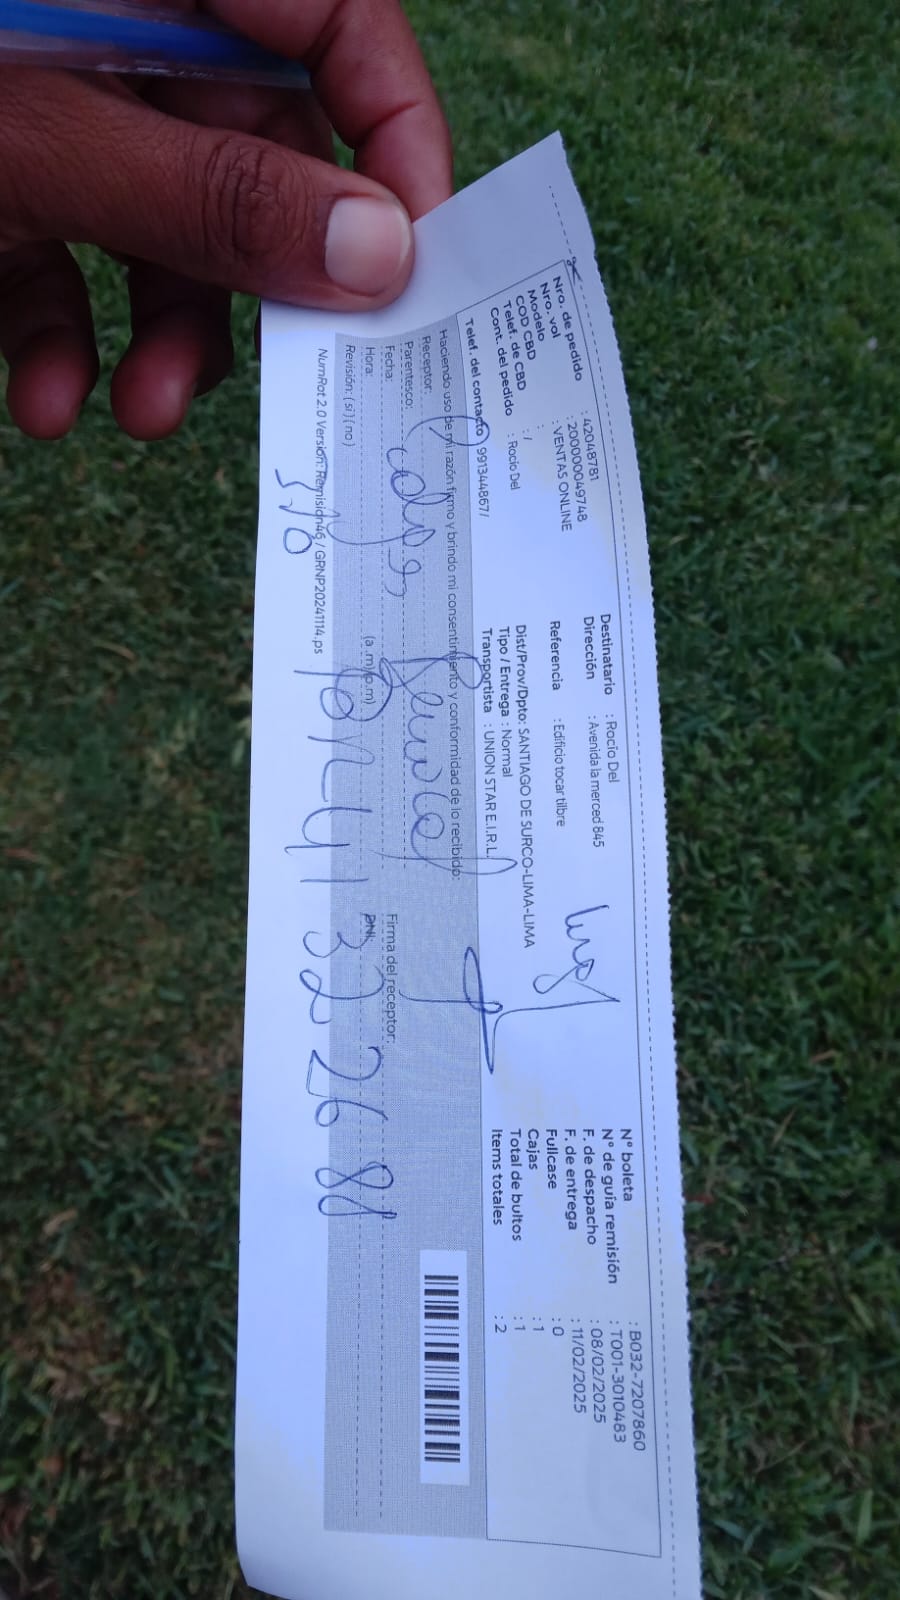 Nro. de pedido : 42048781
Nro. vol : 200000049748
Modelo : VENTAS ONLINE
COD CBD :
Telef. de CBD : /
Cont. del pedido : Rocio Del
Telef. del contacto : 991344867/
Destinatario : Rocio Del
Dirección : Avenida la merced 845
Referencia : Edificio tocar tilbre
Dist/Prov/Dpto: SANTIAGO DE SURCO-LIMA-LIMA
Tipo / Entrega : Normal
Transportista : UNION STAR E.I.R.L.
N° boleta : B032-7207860
N° de guía remisión : T001-3010483
F. de despacho : 08/02/2025
F. de entrega : 11/02/2025
Fullcase : 0
Cajas : 1
Total de bultos : 1
Items totales : 2
Haciendo uso de mi razón firmo y brindo mi consentimiento y conformidad de lo recibido:
Receptor:
Parentesco:
Fecha:
Firma del receptor:
Hora: (a .m)(p.m)
DNI:
Revisión: ( si ) ( no )
NumRot 2.0 Version: Remision46 / GRNP20241114.ps